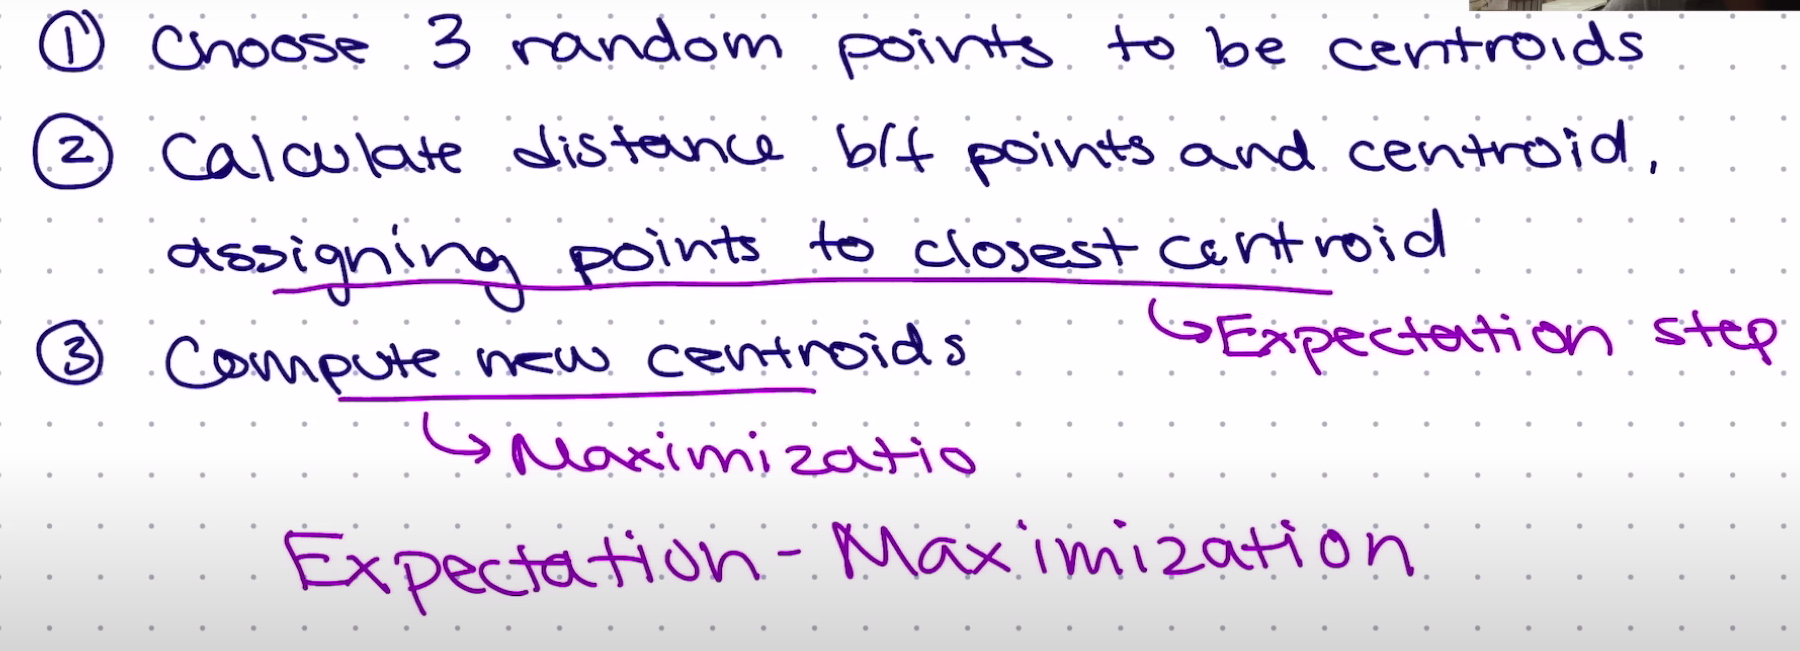 ① Choose 3 random points to be centroids
② Calculate distance b/t points and centroid,
assigning points to closest centroid
↳ Expectation step
③ Compute new centroids
↳ Maximizatio
Expectation - Maximization